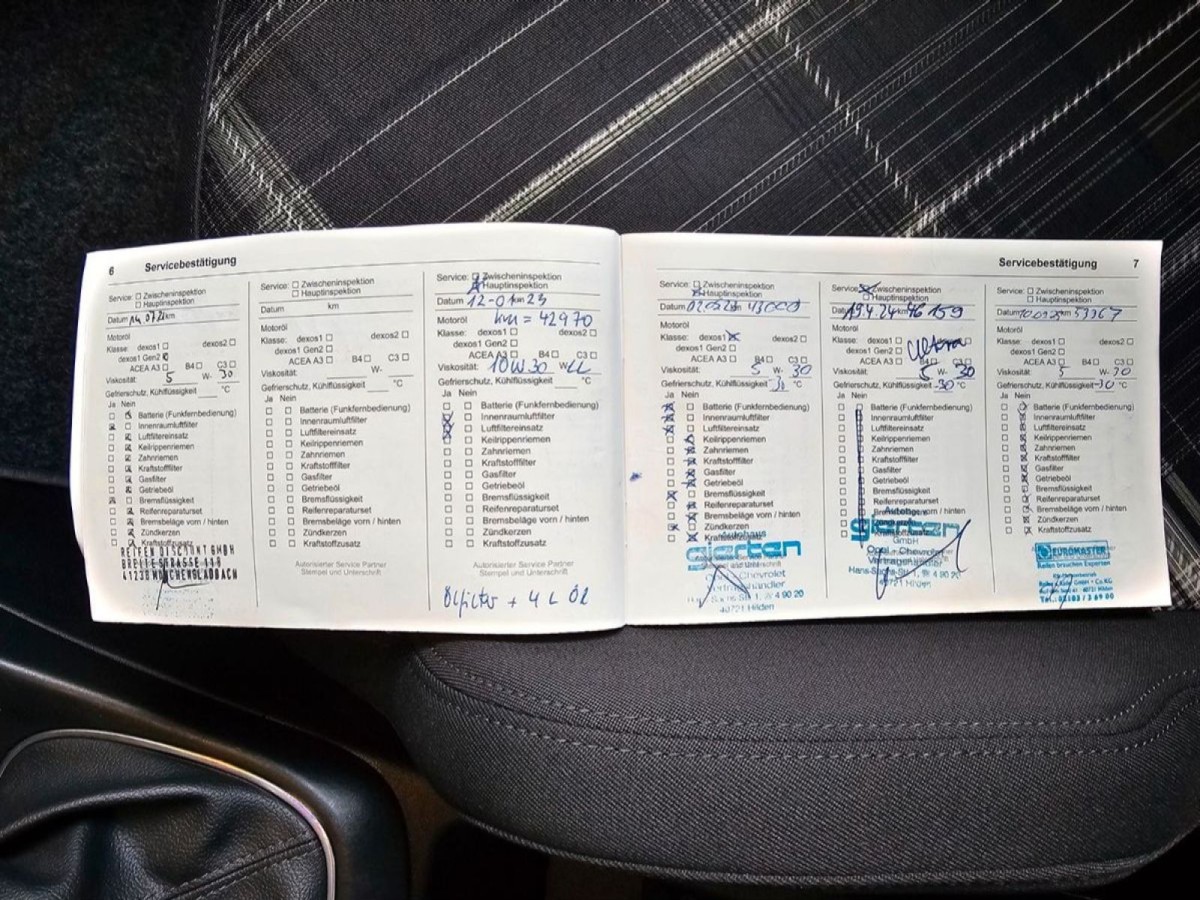 6 Servicebestätigung
Service: ☐ Zwischeninspektion
☐ Hauptinspektion
Datum 14.07.21 km
Motoröl
Klasse: dexos1 ☐ dexos2 ☐
dexos1 Gen2 ☒
ACEA A3 ☐ B4 ☐ C3 ☐
Viskosität: 5 W- 30
Gefrierschutz, Kühlflüssigkeit °C
Ja Nein
☐ ☒ Batterie (Funkfernbedienung)
☒ ☐ Innenraumluftfilter
☐ ☒ Luftfiltereinsatz
☐ ☒ Keilrippenriemen
☐ ☒ Zahnriemen
☐ ☒ Kraftstofffilter
☐ ☒ Gasfilter
☐ ☒ Getriebeöl
☒ ☐ Bremsflüssigkeit
☐ ☒ Reifenreparaturset
☐ ☒ Bremsbeläge vorn / hinten
☐ ☒ Zündkerzen
☐ ☒ Kraftstoffzusatz
REIFEN DISCOUNT GMBH
BREITE STRASSE 118
MÖNCHENGLADBACH
Service: ☐ Zwischeninspektion
☐ Hauptinspektion
Datum km
Motoröl
Klasse: dexos1 ☐ dexos2 ☐
dexos1 Gen2 ☐
ACEA A3 ☐ B4 ☐ C3 ☐
Viskosität: W-
Gefrierschutz, Kühlflüssigkeit °C
Ja Nein
☐ ☐ Batterie (Funkfernbedienung)
☐ ☐ Innenraumluftfilter
☐ ☐ Luftfiltereinsatz
☐ ☐ Keilrippenriemen
☐ ☐ Zahnriemen
☐ ☐ Kraftstofffilter
☐ ☐ Gasfilter
☐ ☐ Getriebeöl
☐ ☐ Bremsflüssigkeit
☐ ☐ Reifenreparaturset
☐ ☐ Bremsbeläge vorn / hinten
☐ ☐ Zündkerzen
☐ ☐ Kraftstoffzusatz
Autorisierter Service Partner
Stempel und Unterschrift
Service: ☐ Zwischeninspektion
☒ Hauptinspektion
Datum 12-01-23
Motoröl km = 42970
Klasse: dexos1 ☐ dexos2 ☐
dexos1 Gen2 ☐
ACEA A3 ☐ B4 ☐ C3 ☐
Viskosität: 10W30 W-
Gefrierschutz, Kühlflüssigkeit °C
Ja Nein
☐ ☐ Batterie (Funkfernbedienung)
☒ ☐ Innenraumluftfilter
☒ ☐ Luftfiltereinsatz
☐ Keilrippenriemen
☐ ☐ Zahnriemen
☐ ☐ Kraftstofffilter
☐ ☐ Gasfilter
☐ ☐ Getriebeöl
☐ ☐ Bremsflüssigkeit
☐ ☐ Reifenreparaturset
☐ ☐ Bremsbeläge vorn / hinten
☐ ☐ Zündkerzen
☐ ☐ Kraftstoffzusatz
Autorisierter Service Partner
Stempel und Unterschrift
Ölfilter + 4 L Öl
Servicebestätigung 7
Service: ☐ Zwischeninspektion
☒ Hauptinspektion
Datum km 43000
Motoröl
Klasse: dexos1 ☒ dexos2 ☐
dexos1 Gen2 ☐
ACEA A3 ☐ B4 ☐ C3 ☐
Viskosität: 5 W- 30
Gefrierschutz, Kühlflüssigkeit °C
Ja Nein
☒ ☐ Batterie (Funkfernbedienung)
☒ ☐ Innenraumluftfilter
☒ ☐ Luftfiltereinsatz
☐ ☒ Keilrippenriemen
☐ ☒ Zahnriemen
☐ ☒ Kraftstofffilter
☐ ☒ Gasfilter
☐ ☒ Getriebeöl
☒ ☐ Bremsflüssigkeit
☐ ☒ Reifenreparaturset
☐ ☒ Bremsbeläge vorn / hinten
☒ ☐ Zündkerzen
☐ ☒ Kraftstoffzusatz
Autohaus
gierten
Chevrolet
Vertragshändler
40721 Hilden
Service: ☒ Zwischeninspektion
☐ Hauptinspektion
Datum 19.4.24 km 46159
Motoröl
Klasse: dexos1 ☐ dexos2 ☐
dexos1 Gen2 ☐ Ultra
ACEA A3 ☐ B4 ☐ C3 ☐
Viskosität: 5 W- 30
Gefrierschutz, Kühlflüssigkeit -30 °C
Ja Nein
Batterie (Funkfernbedienung)
Innenraumluftfilter
Luftfiltereinsatz
Keilrippenriemen
Zahnriemen
Kraftstofffilter
Gasfilter
Getriebeöl
Bremsflüssigkeit
Reifenreparaturset
Bremsbeläge vorn / hinten
Autohaus
gierten
GmbH
Opel Chevrolet
Vertragshändler
Hans-Sachs-Str. 1, ☎ 4 90 20
40721 Hilden
Service: ☐ Zwischeninspektion
☐ Hauptinspektion
Datum km 53367
Motoröl
Klasse: dexos1 ☐ dexos2 ☐
dexos1 Gen2 ☐
ACEA A3 ☐ B4 ☐ C3 ☐
Viskosität: 5 W- 30
Gefrierschutz, Kühlflüssigkeit -30 °C
Ja Nein
☐ ☒ Batterie (Funkfernbedienung)
☐ ☒ Innenraumluftfilter
☐ ☒ Luftfiltereinsatz
☐ ☒ Keilrippenriemen
☐ ☒ Zahnriemen
☐ ☒ Kraftstofffilter
☐ ☒ Gasfilter
☐ ☒ Getriebeöl
☐ ☒ Bremsflüssigkeit
☐ ☒ Reifenreparaturset
☐ ☒ Bremsbeläge vorn / hinten
☐ ☒ Zündkerzen
☐ ☒ Kraftstoffzusatz
EUROMASTER
Reifen besuchen Experten
Hilden
Tel.: 02103 / 3 69 00